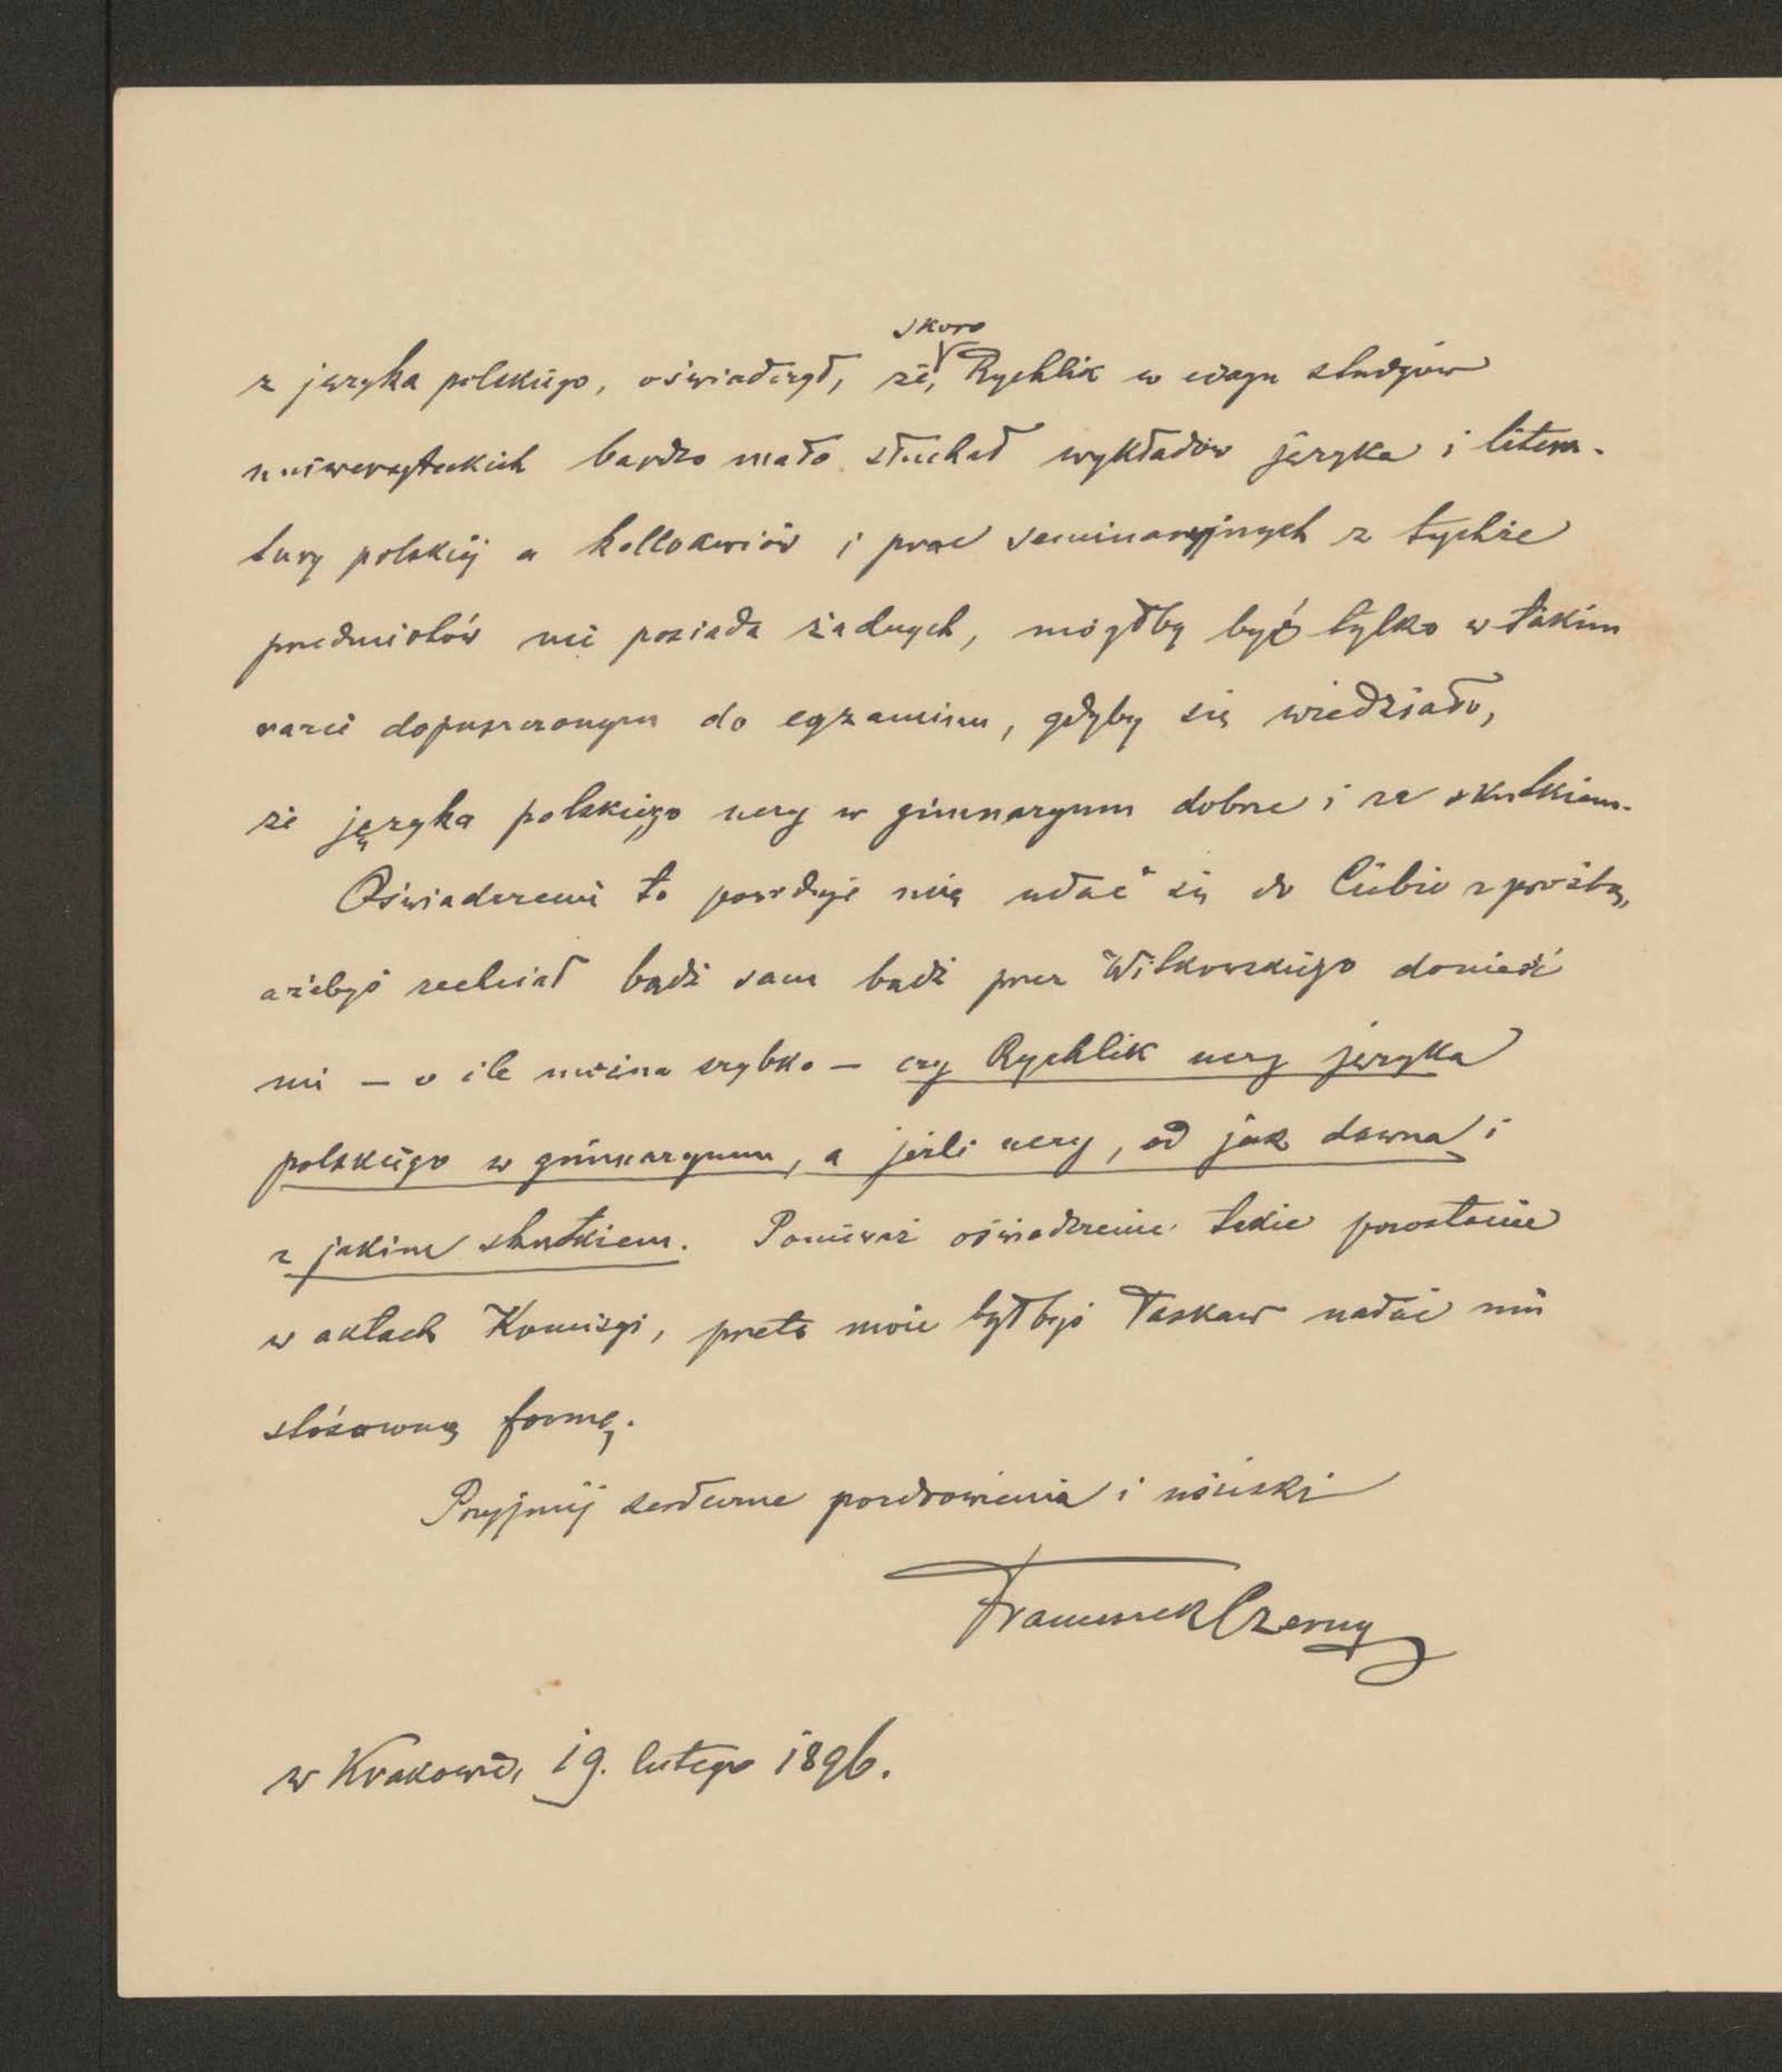 skoro
z języka polskiego, oświadczył, że, Rychlik w ciągu studyów
uniwersyteckich bardzo mało słuchał wykładów języka i litera-
tury polskiej a kollokwiów i prac seminaryjnych z tychże
przedmiotów nie posiada żadnych, mógłby być tylko w takim
razie dopuszczonym do egzaminu, gdyby się wiedziało,
że języka polskiego uczy w gimnazyum dobrze i ze skutkiem.
Oświadczenie to powoduje mię udać się do Ciebie z prośbą,
ażebyś zechciał bądź sam bądź przez Witkowskiego donieść
mi – o ile można szybko – czy Rychlik uczy języka
polskiego w gimnazyum, a jeśli uczy, od jak dawna i
z jakim skutkiem. Ponieważ oświadczenie takie pozostanie
w aktach Komisyi, przeto może byłbyś łaskaw nadać mu
stósowną formę.
Przyjmij serdeczne pozdrowienia i uściski
Franciszek Czerny
w Krakowie, 19. lutego 1896.